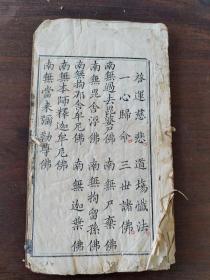 啓運慈悲道場懺法
一心歸命 三世諸佛
南無過去毘婆尸佛 南無尸棄佛
南無毘舍浮佛 南無拘留孫佛
南無拘那含牟尼佛 南無迦葉佛
南無本師釋迦牟尼佛
南無當來彌勒尊佛